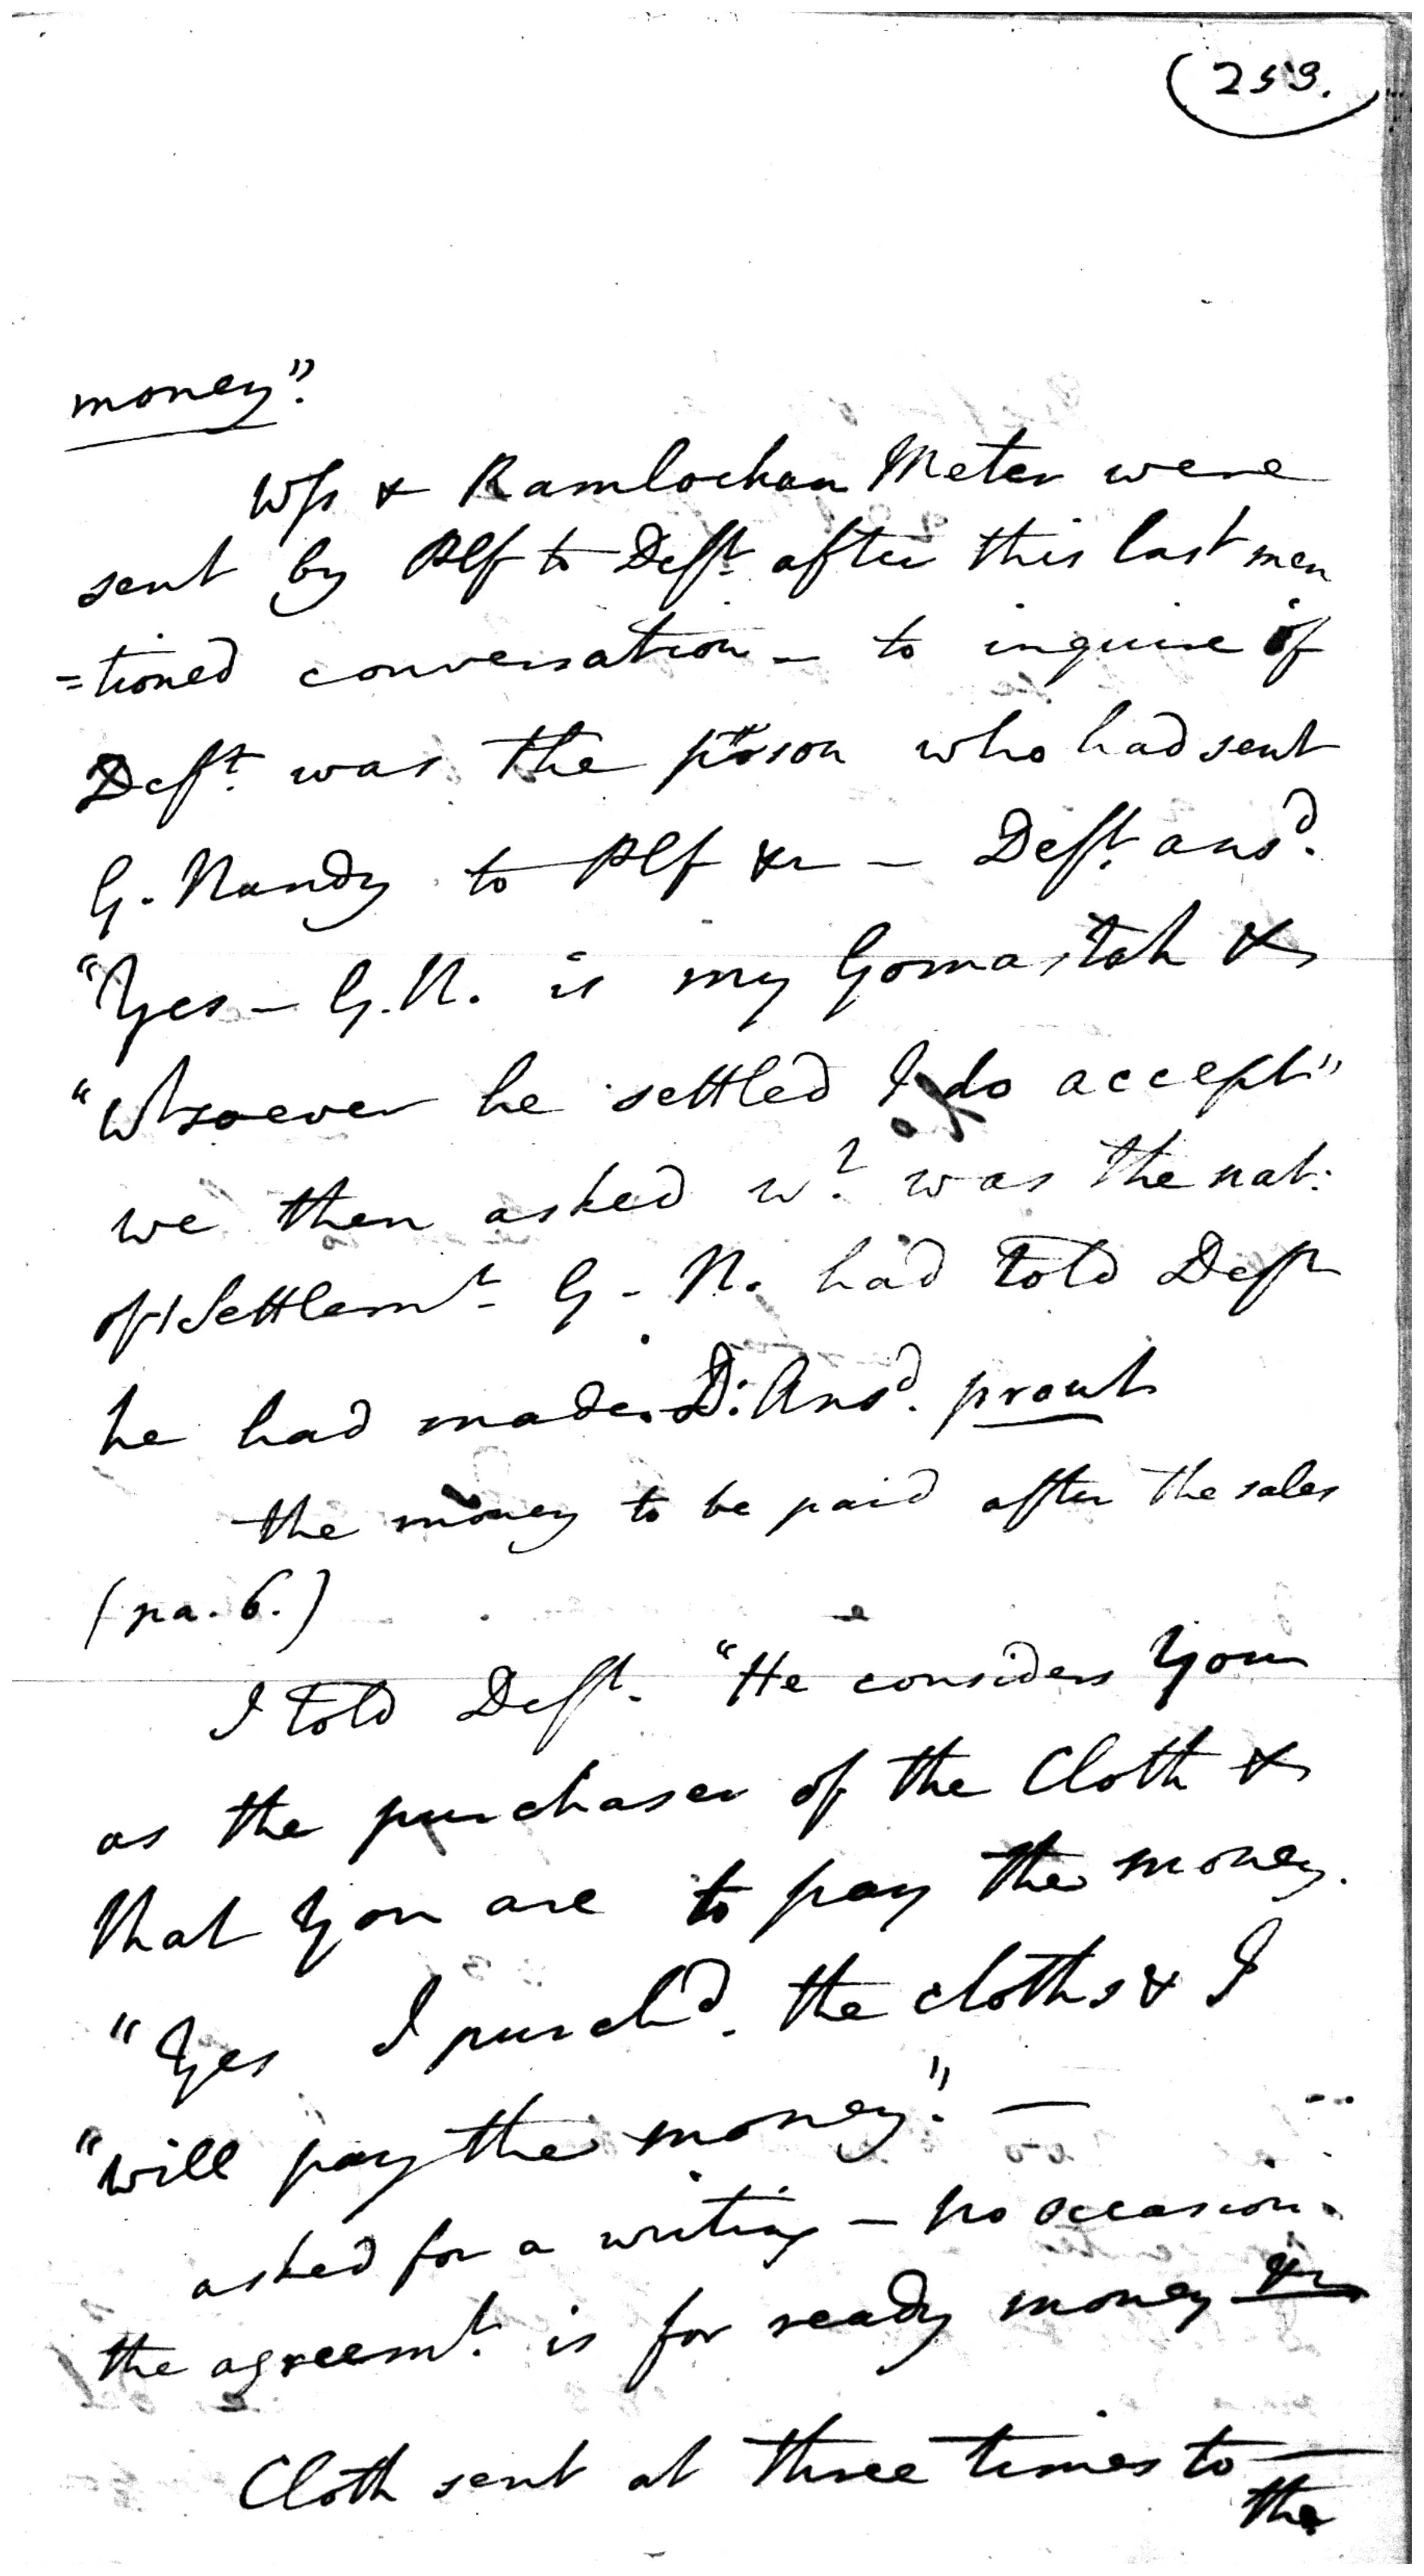 (253.)
money".
Wss & Ramlochan Meter were
sent by Plf to Deft. after this last men
=tioned conversation – to inquire if
Deft. was the person who had sent
G. Nandy to Plf &c – Deft. ansd.
"Yes – G. N. is my Gomastah &
"Whsoever he settled I do accept"
we then asked wt. was the nat:
of Settlemt. G. N. had told Deft
he had made. D: Ansd. prout
the money to be paid after the sales
(pa. 6.)
I told Deft. "He considers You
as the purchaser of the Cloth &
that You are to pay the money.
"Yes I purchd. the cloths & I
"will pay the money". –
asked for a writing – no occasion.
the agreemt. is for ready money &c
Cloth sent at three times to
the